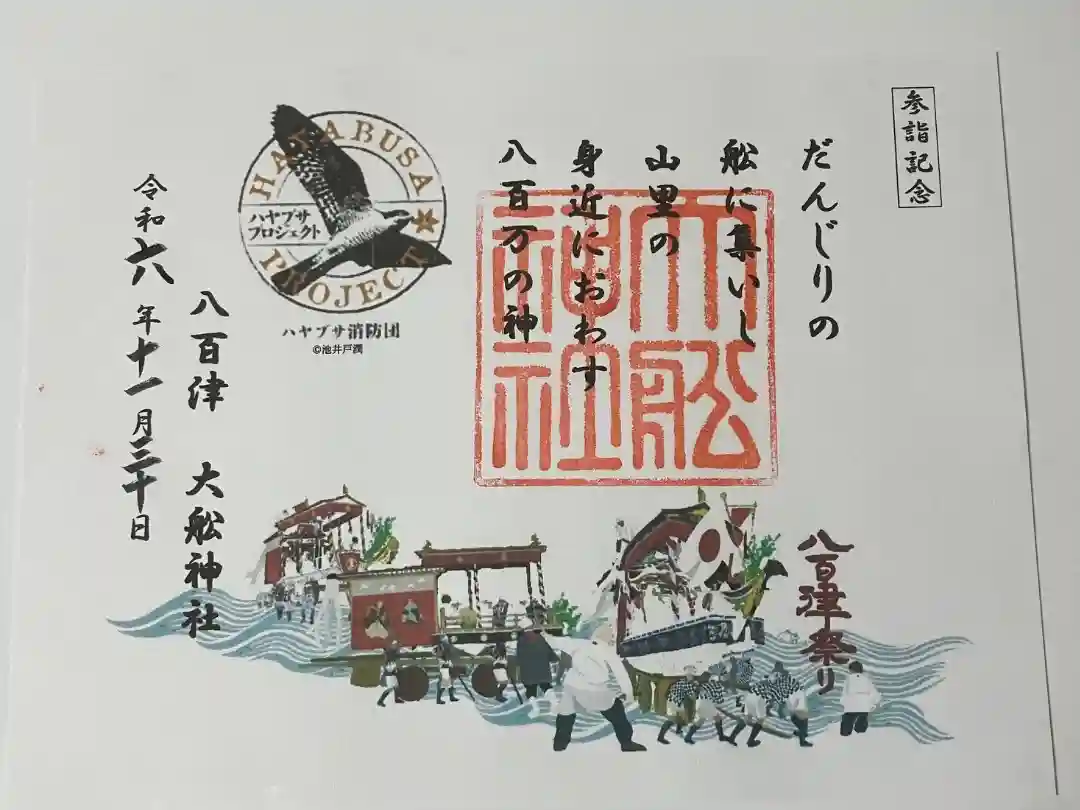 参詣記念
だんじりの
舩に集いし
山里の
身近におわす
八百万の神
大舩神社
八百津祭り
HAYABUSA
ハヤブサ
プロジェクト
PROJECT
ハヤブサ消防団
©池井戸潤
八百津 大舩神社
令和六年十一月三十日